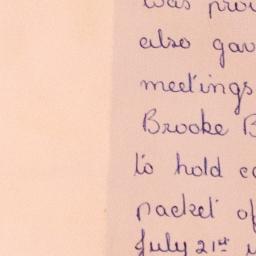 was prov
also gav
meetings
Brooke B
to hold co
packet of
July 21st